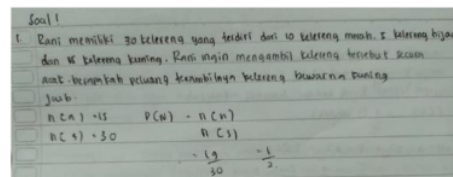 Soal !
1. Rani memiliki 30 kelereng yang terdiri dari 10 kelereng merah, 5 kelereng hijau
dan 15 kelereng kuning. Rani ingin mengambil kelereng tersebut secara
acak. berapakah peluang terambilnya kelereng buwarna kuning
Jawab.
n(n) = 15 P(N) = n(n)
n(s) = 30 n(s)
= 15 = 1
30 2